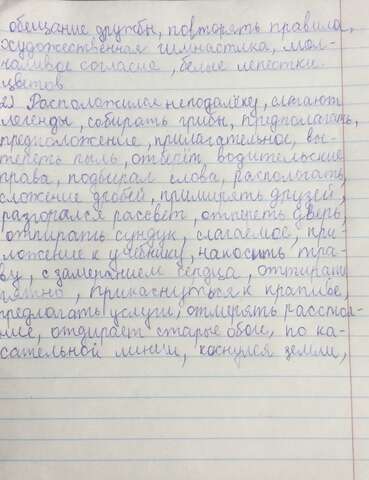 обещание дружбы, повторять правила,
художественная гимнастика, мол-
чаливое согласие, белые лепестки
цветов.
2) Расположился неподалёку, слагают
легенды, собирать грибы, предполагать,
предположение, прилагательное, вы-
тереть пыль, отворёт, водительские
права, подбирал слова, располагать,
сложение дробей, примирять друзей,
разгорался рассвет, отпереть дверь,
отпирать сундук, слагаемое, при-
ложение к учебнику, накосить тра-
ву, с замиранием сердца, оттирать
пятно, прикаснуться к крапиве,
предлагать услуги, отмерять расстоя-
ние, отдирает старые обои, по ка-
сательной линии, коснулся земли,